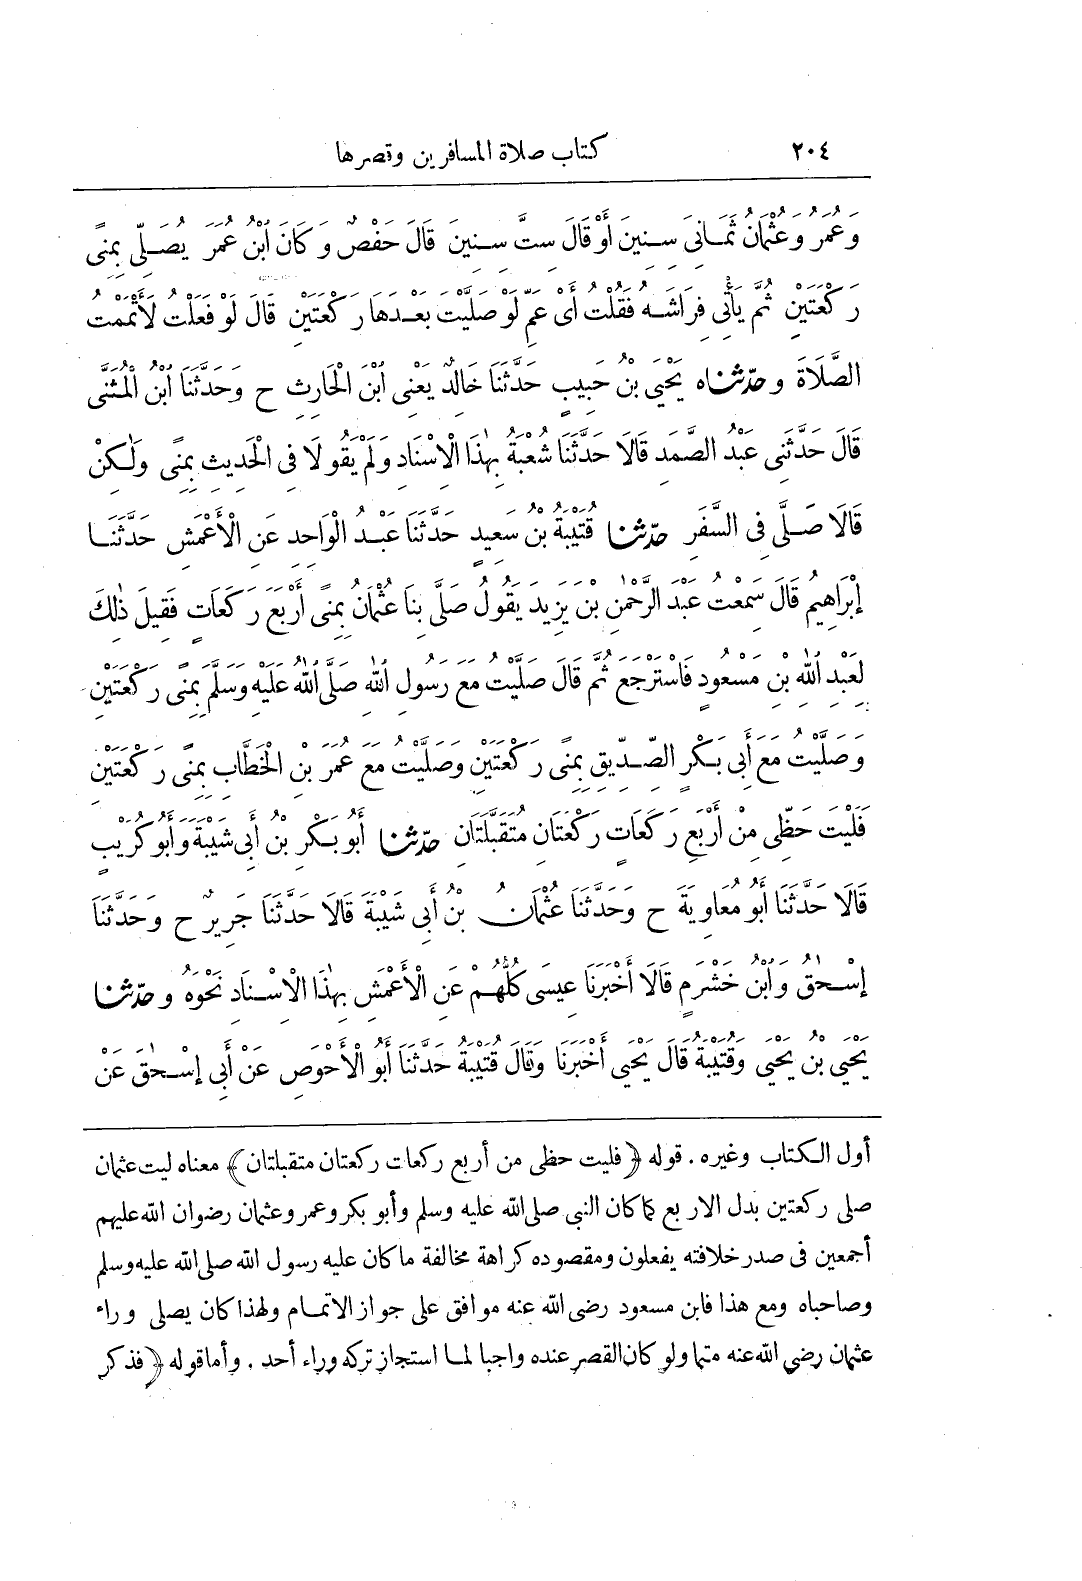 ٢٠٤ كتاب صلاة المسافرين وقصرها
وَعُمَرُ وَعُثْمَانُ ثَمَانِيَ سِنِينَ أَوْ قَالَ سِتَّ سِنِينَ قَالَ حَفْصٌ وَكَانَ ابْنُ عُمَرَ يُصَلِّي بِمِنًى
رَكْعَتَيْنِ ثُمَّ يَأْتِي فِرَاشَهُ فَقُلْتُ أَىْ عَمِّ لَوْ صَلَّيْتَ بَعْدَهَا رَكْعَتَيْنِ قَالَ لَوْ فَعَلْتُ لَأَتْمَمْتُ
الصَّلَاةَ و حَدَّثَنَاه يَحْيَى بْنُ حَبِيبٍ حَدَّثَنَا خَالِدٌ يَعْنِى ابْنَ الْحَارِثِ ح وَحَدَّثَنَا ابْنُ الْمُثَنَّى
قَالَ حَدَّثَنِى عَبْدُ الصَّمَدِ قَالَا حَدَّثَنَا شُعْبَةُ بِهٰذَا الْإِسْنَادِ وَلَمْ يَقُولَا فِى الْحَدِيثِ بِمِنًى وَلٰكِنْ
قَالَا صَلَّى فِى السَّفَرِ حَدَّثَنَا قُتَيْبَةُ بْنُ سَعِيدٍ حَدَّثَنَا عَبْدُ الْوَاحِدِ عَنِ الْأَعْمَشِ حَدَّثَنَا
إِبْرَاهِيمُ قَالَ سَمِعْتُ عَبْدَ الرَّحْمٰنِ بْنَ يَزِيدَ يَقُولُ صَلَّى بِنَا عُثْمَانُ بِمِنًى أَرْبَعَ رَكَعَاتٍ فَقِيلَ ذٰلِكَ
لِعَبْدِ اللهِ بْنِ مَسْعُودٍ فَاسْتَرْجَعَ ثُمَّ قَالَ صَلَّيْتُ مَعَ رَسُولِ اللهِ صَلَّى اللهُ عَلَيْهِ وَسَلَّمَ بِمِنًى رَكْعَتَيْنِ
وَصَلَّيْتُ مَعَ أَبِى بَكْرٍ الصِّدِّيقِ بِمِنًى رَكْعَتَيْنِ وَصَلَّيْتُ مَعَ عُمَرَ بْنِ الْخَطَّابِ بِمِنًى رَكْعَتَيْنِ
فَلَيْتَ حَظِّى مِنْ أَرْبَعِ رَكَعَاتٍ رَكْعَتَانِ مُتَقَبَّلَتَانِ حَدَّثَنَا أَبُو بَكْرِ بْنُ أَبِى شَيْبَةَ وَأَبُو كُرَيْبٍ
قَالَا حَدَّثَنَا أَبُو مُعَاوِيَةَ ح وَحَدَّثَنَا عُثْمَانُ بْنُ أَبِى شَيْبَةَ قَالَا حَدَّثَنَا جَرِيرٌ ح وَحَدَّثَنَا
إِسْحٰقُ وَابْنُ خَشْرَمٍ قَالَا أَخْبَرَنَا عِيسَى كُلُّهُمْ عَنِ الْأَعْمَشِ بِهٰذَا الْإِسْنَادِ نَحْوَهُ و حَدَّثَنَا
يَحْيَى بْنُ يَحْيَى وَقُتَيْبَةُ قَالَ يَحْيَى أَخْبَرَنَا وَقَالَ قُتَيْبَةُ حَدَّثَنَا أَبُو الْأَحْوَصِ عَنْ أَبِى إِسْحٰقَ عَنْ
أول الكتاب وغيره . قوله ﴿فليت حظى من أربع ركعات ركعتان متقبلتان﴾ معناه ليت عثمان
صلى ركعتين بدل الاربع كما كان النبى صلى الله عليه وسلم وأبو بكر وعمر وعثمان رضوان الله عليهم
أجمعين فى صدر خلافته يفعلون ومقصوده كراهة مخالفة ما كان عليه رسول الله صلى الله عليه وسلم
وصاحباه ومع هذا فابن مسعود رضى الله عنه موافق على جواز الاتمام ولهذا كان يصلى وراء
عثمان رضى الله عنه متما ولو كان القصر عنده واجبا لما استجاز تركه وراء أحد . وأما قوله ﴿فذكر